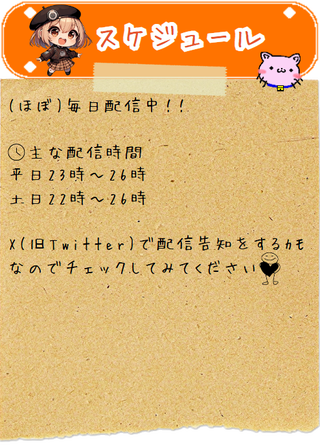 スケジュール
(ほぼ)毎日配信中!!
主な配信時間
平日23時～26時
土日22時～26時
X(旧Twitter)で配信告知をするカモ
なのでチェックしてみてください